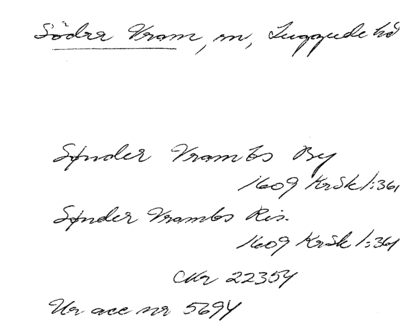 Södra Vram, sn, Luggude hd
Synder Vrambs By
1609 KrSk 1:361
Synder Vrambs Ris.
1609 KrSk 1:361
CNr 22354
Ur acc nr 5694